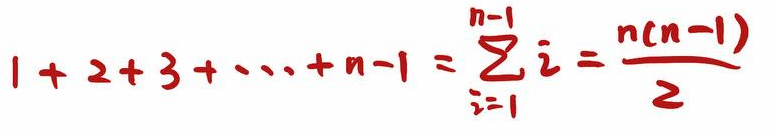 1 + 2 + 3 + ... + n-1 = \sum_{i=1}^{n-1} i = \frac{n(n-1)}{2}